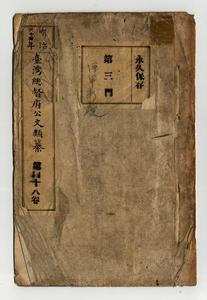 永久保存
第三門
明治
年
臺灣總督府公文類纂
十八卷